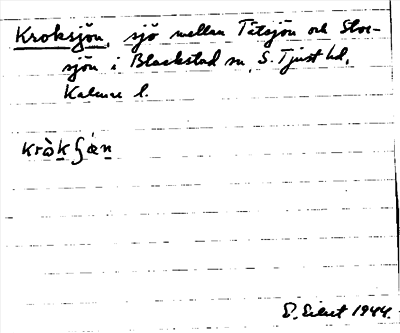 Kroksjön, sjö mellan Tätsjön och Stor-
sjön i Blackstad sn, S. Tjust hd,
Kalmar l.
krò̀kʃǽn
1944.